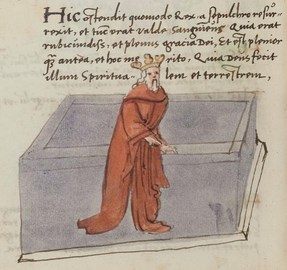 Hic ostendit quomodo Rex, a sepulchro resur-
rexit, et tunc erat valdo sanguineus Quia erat
rubicundiss, et plenus gracia Dei, Et est plenior
q̃ antea, et hoc merito, Quia Deus fecit
illum Spiritualem et terrestrem,